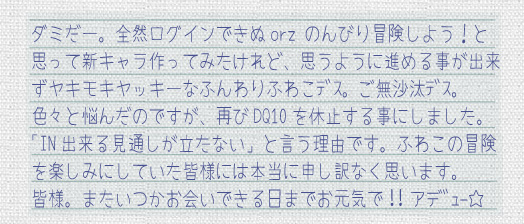 ダミだー。全然ログインできぬorz のんびり冒険しよう！と
思って新キャラ作ってみたけれど、思うように進める事が出来
ずヤキモキヤッキーなふんわりふわこデス。ご無沙汰デス。
色々と悩んだのですが、再びDQ10を休止する事にしました。
「IN出来る見通しが立たない」と言う理由です。ふわこの冒険
を楽しみにしていた皆様には本当に申し訳なく思います。
皆様。またいつかお会いできる日までお元気で!! アデュー☆